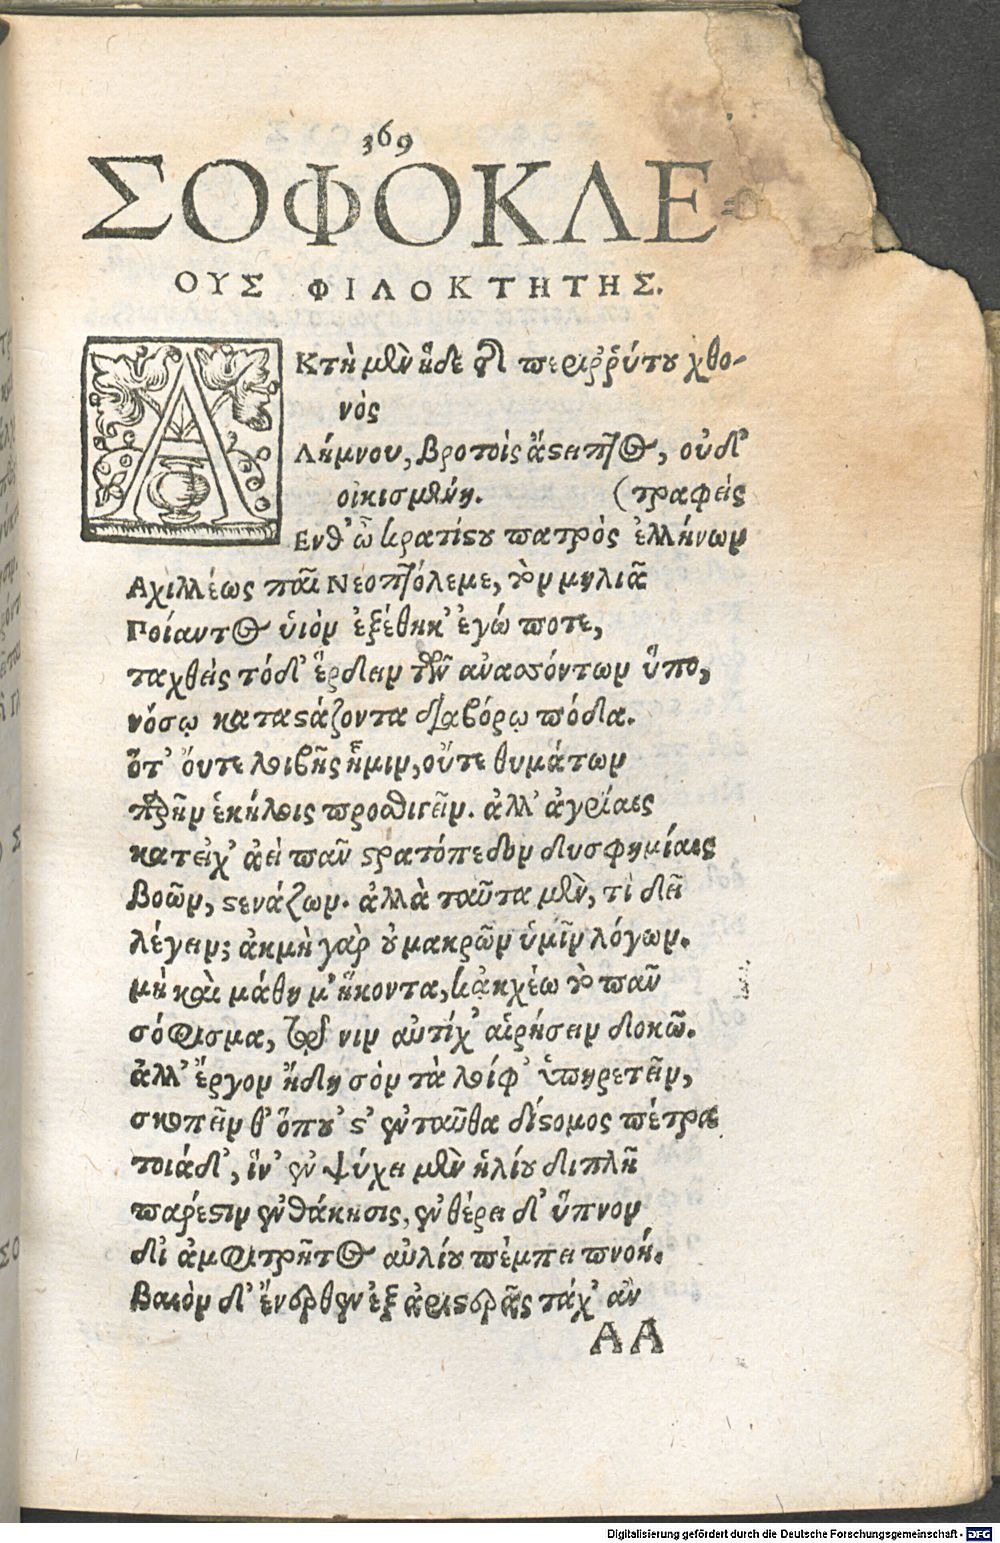 369
ΣΟΦΟΚΛΕ=
ΟΥΣ ΦΙΛΟΚΤΗΤΗΣ.
ΑΚτὴ μὲν ἥδε τ͂ περιῤῥύτου χθο-
νὸς
Λήμνου, βροτοῖς ἄστειπτος, οὐδ'
οἰκισμένη. (τραφεὶς
Ενθ' ὦ κρατίστου πατρὸς ἑλλήνων
Αχιλλέως παῖ Νεοπτόλεμε, τὸν μηλιᾶ
Ποίαντος ὑιὸν ἐξέθηκ' ἐγώ ποτε,
ταχθεὶς τόδ' ἔρδειν τῶν ἀνασσόντων ὕπο,
νόσῳ καταστάζοντα διαβόρῳ πόδα.
ὅτ' ὄυτε λοιβῆς ἥμιν, οὔτε θυμάτων
παρῆν ἑκήλοις προσθιγεῖν. ἀλλ' ἀγρίαις
κατεῖχ' ἀεὶ πᾶν στρατόπεδον δυσφημίαις
βοῶν, στενάζων. ἀλλὰ ταῦτα μὲν, τί δεῖ
λέγειν; ἀκμὴ γὰρ οὐ μακρῶν ὑμῖν λόγων.
μὴ καὶ μάθῃ μ' ἥκοντα, κἀκχέω τὸ πᾶν
σόφισμα, τῷ νιν αὐτίχ' αἱρήσειν δοκῶ.
ἀλλ' ἔργον ἤδη σὸν τὰ λοίφ' ὑπηρετεῖν,
σκοπεῖν θ' ὅπου 'στ' ἐνταῦθα δίστομος πέτρα
τοιάδ', ἵν' ἐν ψύχει μὲν ἡλίου διπλῆ
πάρεστιν ἐνθάκησις, ἐν θέρει δ' ὕπνον
δι' ἀμφιτρῆτος αὐλίου πέμπει πνοή.
Βαιὸν δ' ἔνερθεν ἐξ ἀριστερᾶς τάχ' ἂν
ΑΑ
Digitalisierung gefördert durch die Deutsche Forschungsgemeinschaft - DFG